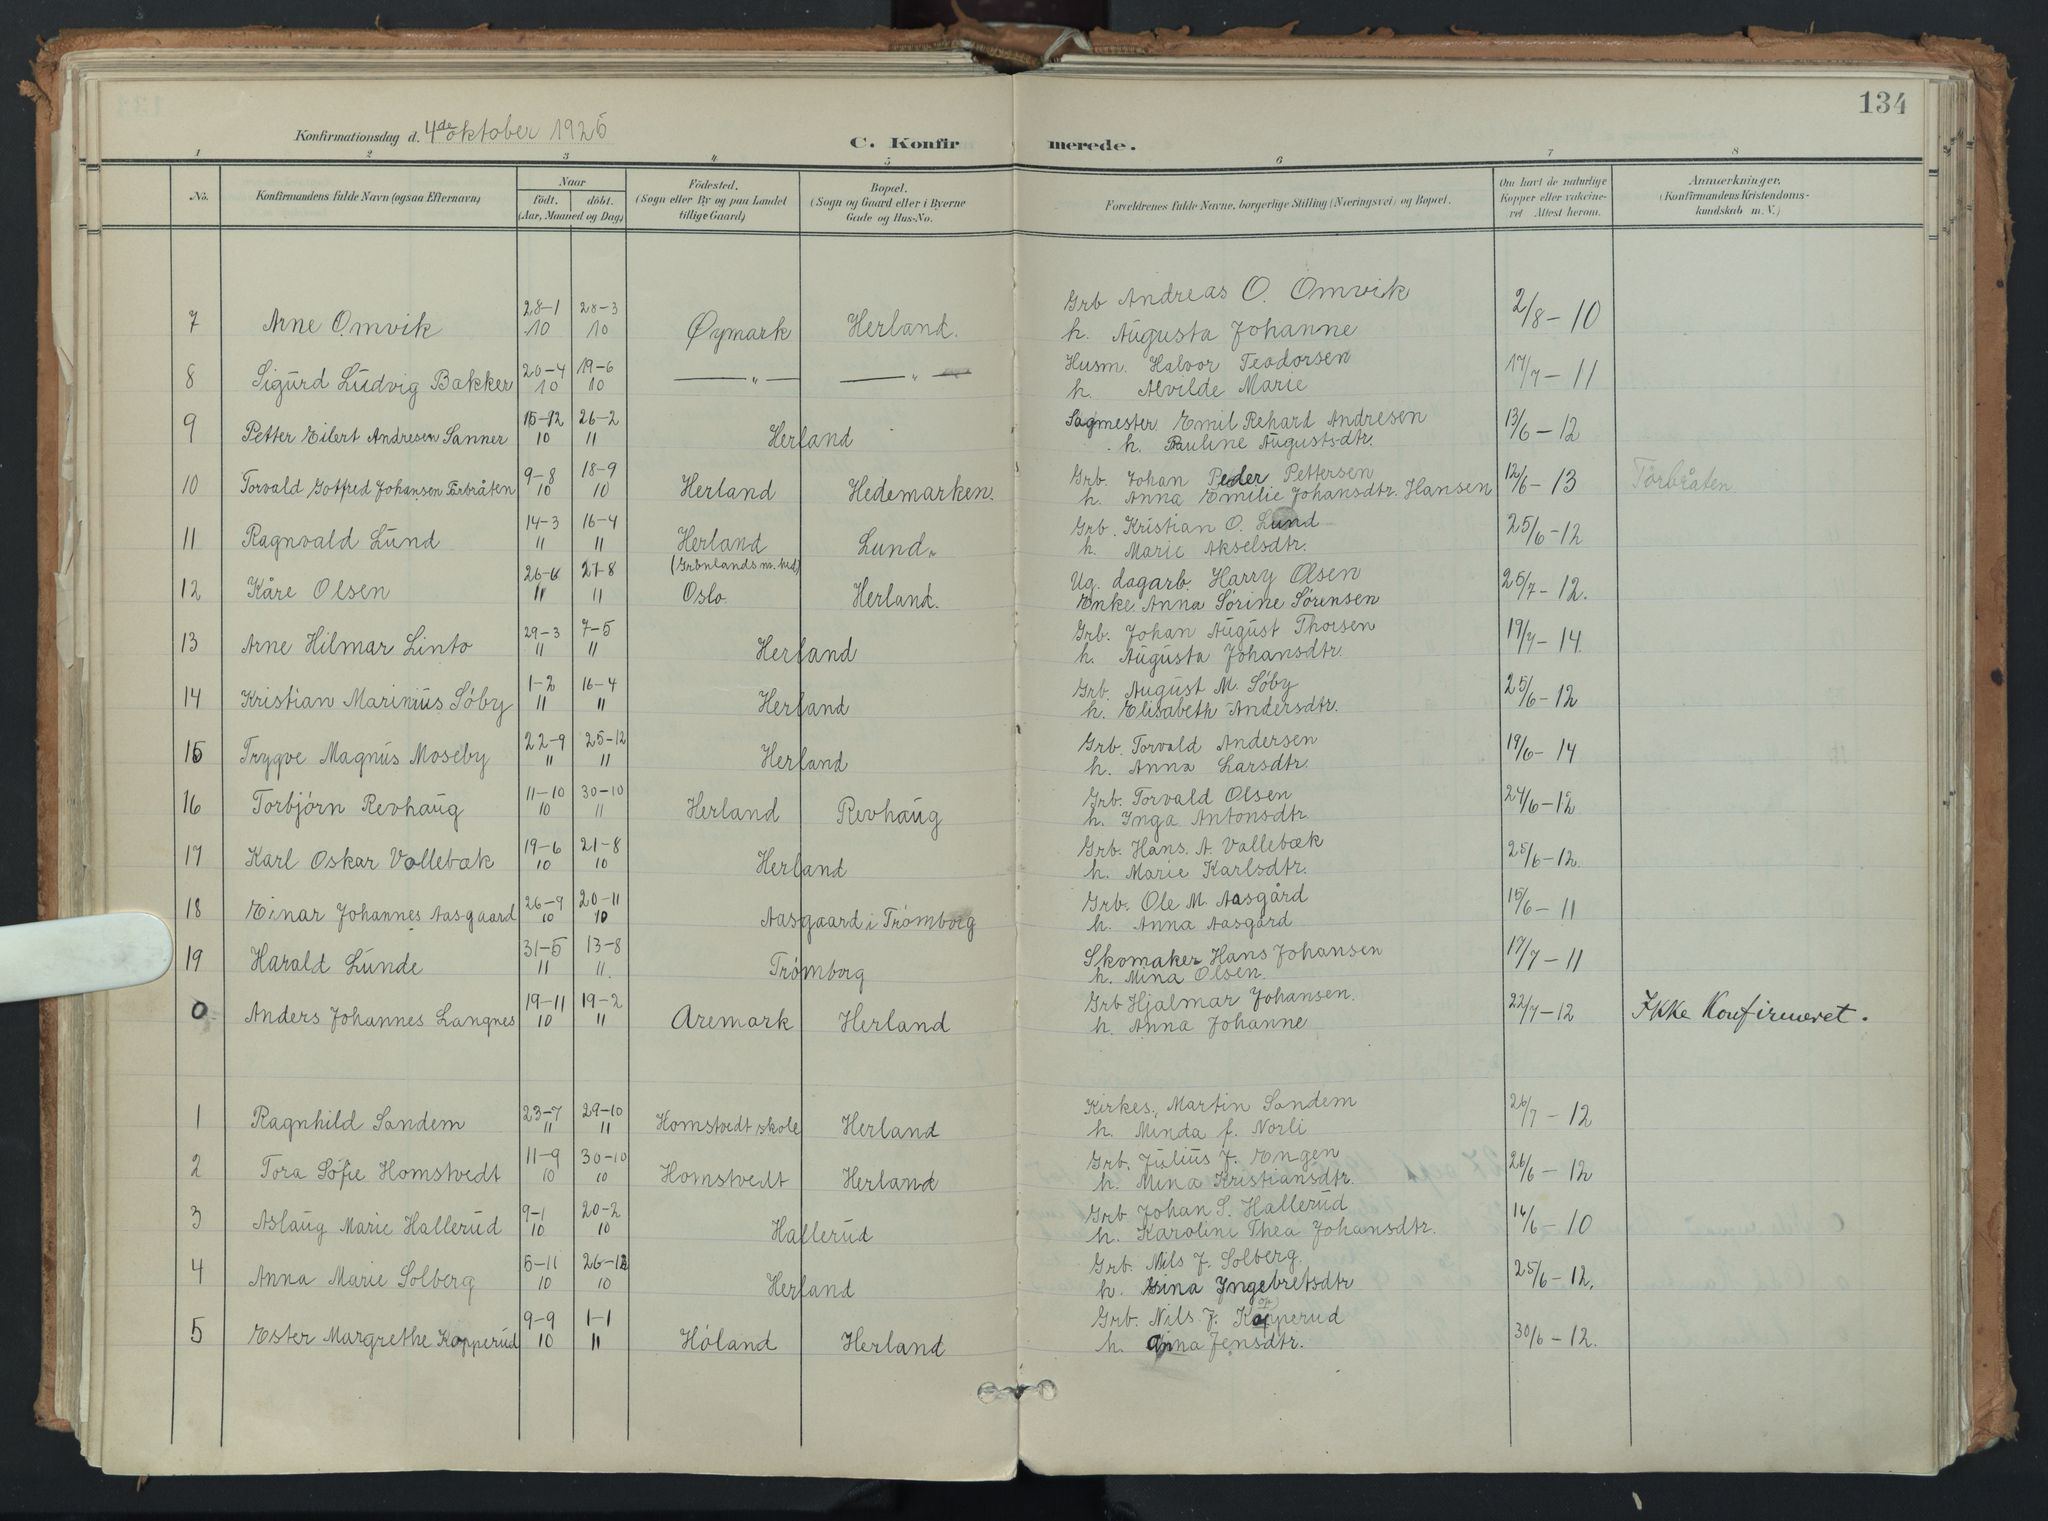 134
Konfirmationsdag d. 4de oktober 1925
C. Konfirmerede.
1 2 3 4 5 6 7 8
No. Konfirmandens fulde Navn (ogsaa Efternavn) Naar Födested. Bopæl. Forældrenes fulde Navne, borgerlige Stilling (Næringsvei) og Bopæl. Om havt de naturlige Anmærkninger.
födt. döbt. (Sogn eller By og paa Landet (Sogn og Gaard eller i Byerne Kopper eller vakcine- (Konfirmandens Kristendoms-
(Aar, Maaned og Dag) tillige Gaard) Gade og Hus-No. ret Attest herom. kundskab m. V.)
28-1 28-3 Grb Andreas O. Omvik 2/8-10
7 Arne Omvik 10 10 Øymark Herland. h. Augusta Johanne
20-4 19-6 Husm. Halvor Teodorsen 17/7-11
8 Sigurd Ludvig Bakker 10 10 —"— —"— h. Alvilde Marie
15-12 26-2 Sagmester Emil Rehard Andresen 13/6-12
9 Petter Eilert Andresen Sanner 10 11 Herland h. Pauline Augustsdtr.
9-8 18-9 Grb. Johan Peder Pettersen 12/6-13 Torbråten
10 Torvald Gotfred Johansen Torbråten 10 10 Herland Hedemarken. h. Anna Emilie Johansdtr. Hansen
14-3 16-4 Grb. Kristian O. Lund 25/6-12
11 Ragnvald Lund 11 11 Herland Lund. h. Marie Akselsdtr.
26-6 27-8 (Grønlands m. hed) Ug. dagarb. Harry Olsen 25/7-12.
12 Kåre Olsen 11 11 Oslo. Herland. Enke Anna Sørine Sørensen
29-3 7-5 Grb. Johan August Thorsen 19/7-14
13 Arne Hilmar Linto 11 11 Herland h. Augusta Johansdtr.
1-2 16-4 Grb. August M. Søby 25/6-12
14 Kristian Marinius Søby 11 11 Herland h. Elisabeth Andersdtr.
22-9 25-12 Grb. Torvald Andersen 19/6-14
15 Trygve Magnus Moseby 11 11 Herland h. Anna Larsdtr.
11-10 30-10 Grb. Torvald Olsen 24/6-12
16 Torbjørn Revhaug 10 11 Herland Revhaug h. Inga Antonsdtr.
19-6 21-8 Grb. Hans A. Vallebæk 25/6-12.
17 Karl Oskar Vollebæk 10 10 Herland h. Marie Karlsdtr.
26-9 20-11 Grb. Ole M. Aasgård 15/6-11
18 Einar Johannes Aasgaard 10 10 Aasgaard i Trømborg h. Anna Aasgård
31-5 13-8 Skomaker Hans Johansen 17/7-11
19 Harald Lunde 11 11. Trømborg h. Mina Olsen
19-11 19-2 Grb Hjalmar Johansen. 22/7-12 Ikke Konfirmeret.
0 Anders Johannes Langnes 10 11 Aremark Herland h. Anna Johanne
23-7 29-10 Kirkes. Martin Sandem 26/7-12
1 Ragnhild Sandem 11 11 Homstvedt skole Herland h. Minda f. Norli
11-9 30-10 Grb. Julius J. Engen 26/6-12
2 Tora Sofie Homstvedt 10 10 Homstvedt Herland h. Mina Kristiansdtr.
9-1 20-2 Grb Johan S. Hallerud 16/6-10
3 Aslaug Marie Hallerud 10 10 Hallerud h. Karoline Thea Johansdtr.
5-11 26-12 Grb. Nils J. Solberg. 25/6-12.
4 Anna Marie Solberg 10 10 Herland h. Gina Yngebretsdtr
9-9 1-1 Grb. Nils J. Kopperud 30/6-12.
5 Ester Margrethe Kopperud 10 11 Høland Herland h. Anna Jensdtr.